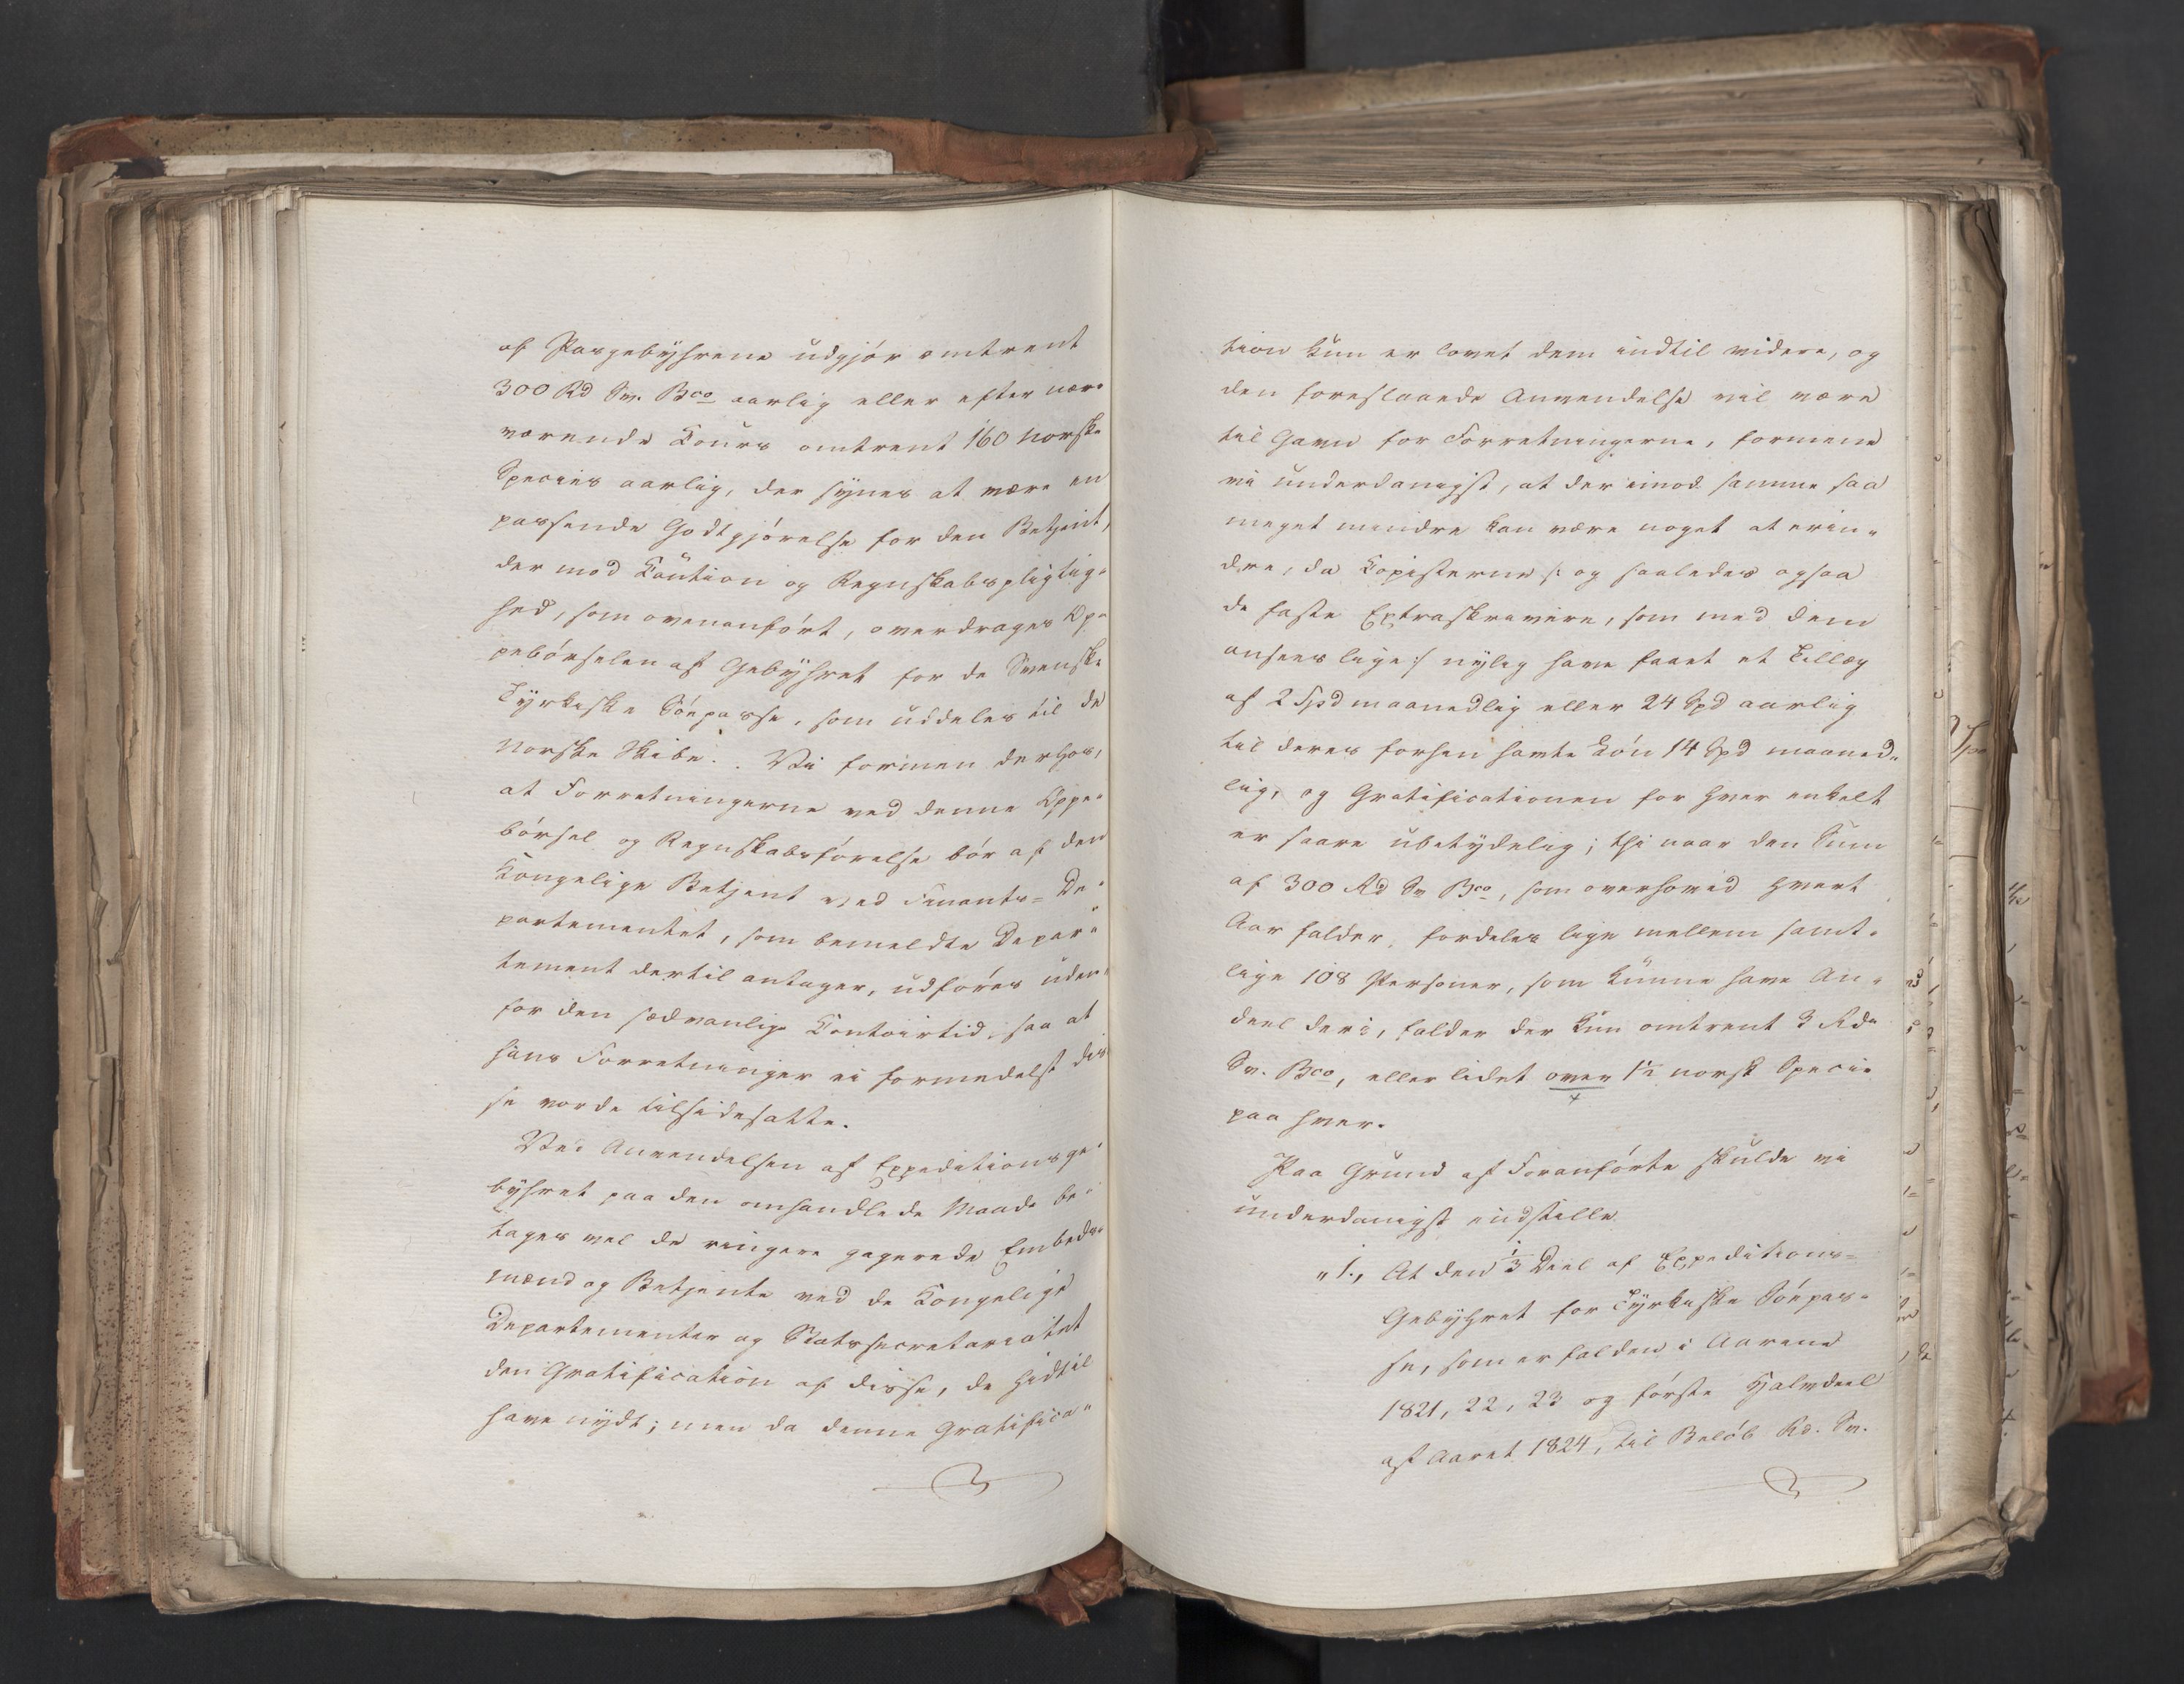 af Pasgebyhrene udgjør omtrent
300 Rd Sv. Bco aarlig eller efter nær-
værende Cours omtrent 160 Norske
Species aarlig, der synes at være en
passende Godtgjørelse for den Betjent,
der mod Caution og Regnskabspligtig-
hed, som ovenanført, overdrages Op-
pebørselen af Gebyhret for de Svenske
Tyrkiske Søepasse, som uddeles til de
Norske Skibe. Vi formene derhos,
at Forretningerne ved denne Oppe-
børsel og Regnskabsførelse bør af den
Kongelige Betjent ved Finants-De-
partementet, som bemeldte Depar-
tement dertil antager, udføres uden-
for den sædvanlige Contoirtid, saa at
hans Forretninger ei formedelst dis-
se vorde tilsidesatte.
Ved Anvendelsen af Expeditionsge-
byhret paa den omhandlede Maade be-
tages vel de ringere gagerede Embeds-
mænd og Betjente ved de Kongelige
Departementer og Statssecretariatet
den Gratification af disse, de hidtil
have nydt; men da denne Gratifica-
tion kun er lovet dem indtil videre, og
den foreslaaede Anvendelse vil være
til Gavn for Forretningerne, formene
vi underdanigst, at der imod samme saa
meget mindre kan være noget at erin-
dre, da Copisterne /: og saaledes ogsaa
de faste Extraskrivere, som med dem
ansees lige :/ nylig have faaet et Tillæg
af 2 Spd maanedlig eller 24 Spd aarlig
til deres forhen havte Løn 14 Spd maaned-
lig, og Gratificationen for hver enkelt
er saare ubetydelig; thi naar den Sum
af 300 Rd Sv Bco, som overhoved hvert
Aar falder, fordeles lige mellem samt-
lige 108 Personer, som kunne have An-
deel deri, falder der kun omtrent 3 Rd
Sv. Bco, eller lidet over 1½ norsk Specie
paa hver.
Paa Grund af Foranførte skulde vi
underdanigst indstille
"1., At den ⅓ Deel af Expeditions-
Gebyhret for Tyrkiske Søepas-
se, som er falden i Aarene
1821, 22, 23 og første Halvdeel
af Aaret 1824, til Beløb Rd. Sv.